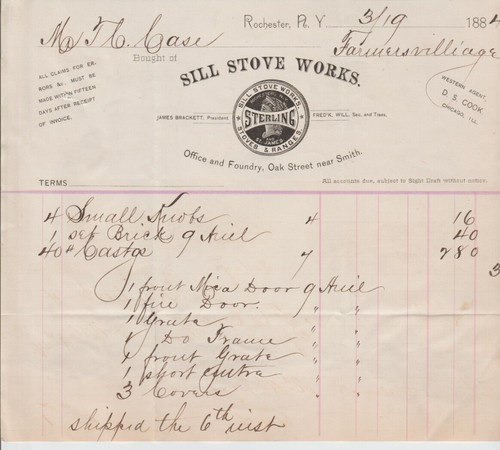 Rochester, N. Y. 3/19 1884
M T C. Case Farmersvilliage
Bought of
SILL STOVE WORKS.
ALL CLAIMS FOR ER-
RORS &c., MUST BE
MADE WITHIN FIFTEEN
DAYS AFTER RECEIPT
OF INVOICE.
WESTERN AGENT
D. S. COOK
CHICAGO, ILL.
JAMES BRACKETT, President
SILL STOVE WORKS.
STERLING
STOVES & RANGES.
FRED'K. WILL, Sec. and Treas.
Office and Foundry, Oak Street near Smith.
TERMS
All accounts due, subject to Sight Draft without notice.
4 Small Knobs 4 16
1 set Brick 9 40
40 # Castgs 7 280
3
1 front Mica Door 9
1 fire Door. " "
1 Grate " "
1 Do Frame " "
1 front Grate " "
1 short " "
3 Covers " "
shipped the 6th inst